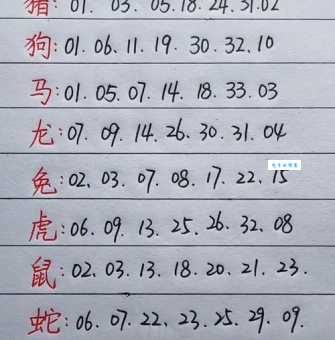 猪: 01. 03. 05.18.24.31.02
狗:01.06、11、19、30、32、10
马:01.05、07、14、18、33、03
龙:07、09、14、26、30、31、04
兔:02、03、07、08、17、22、15
虎:06、09、13、25、26、32、08
鼠:02、03、13、18、20、21、23.
蛇:06、07、22、23、25、29、09.